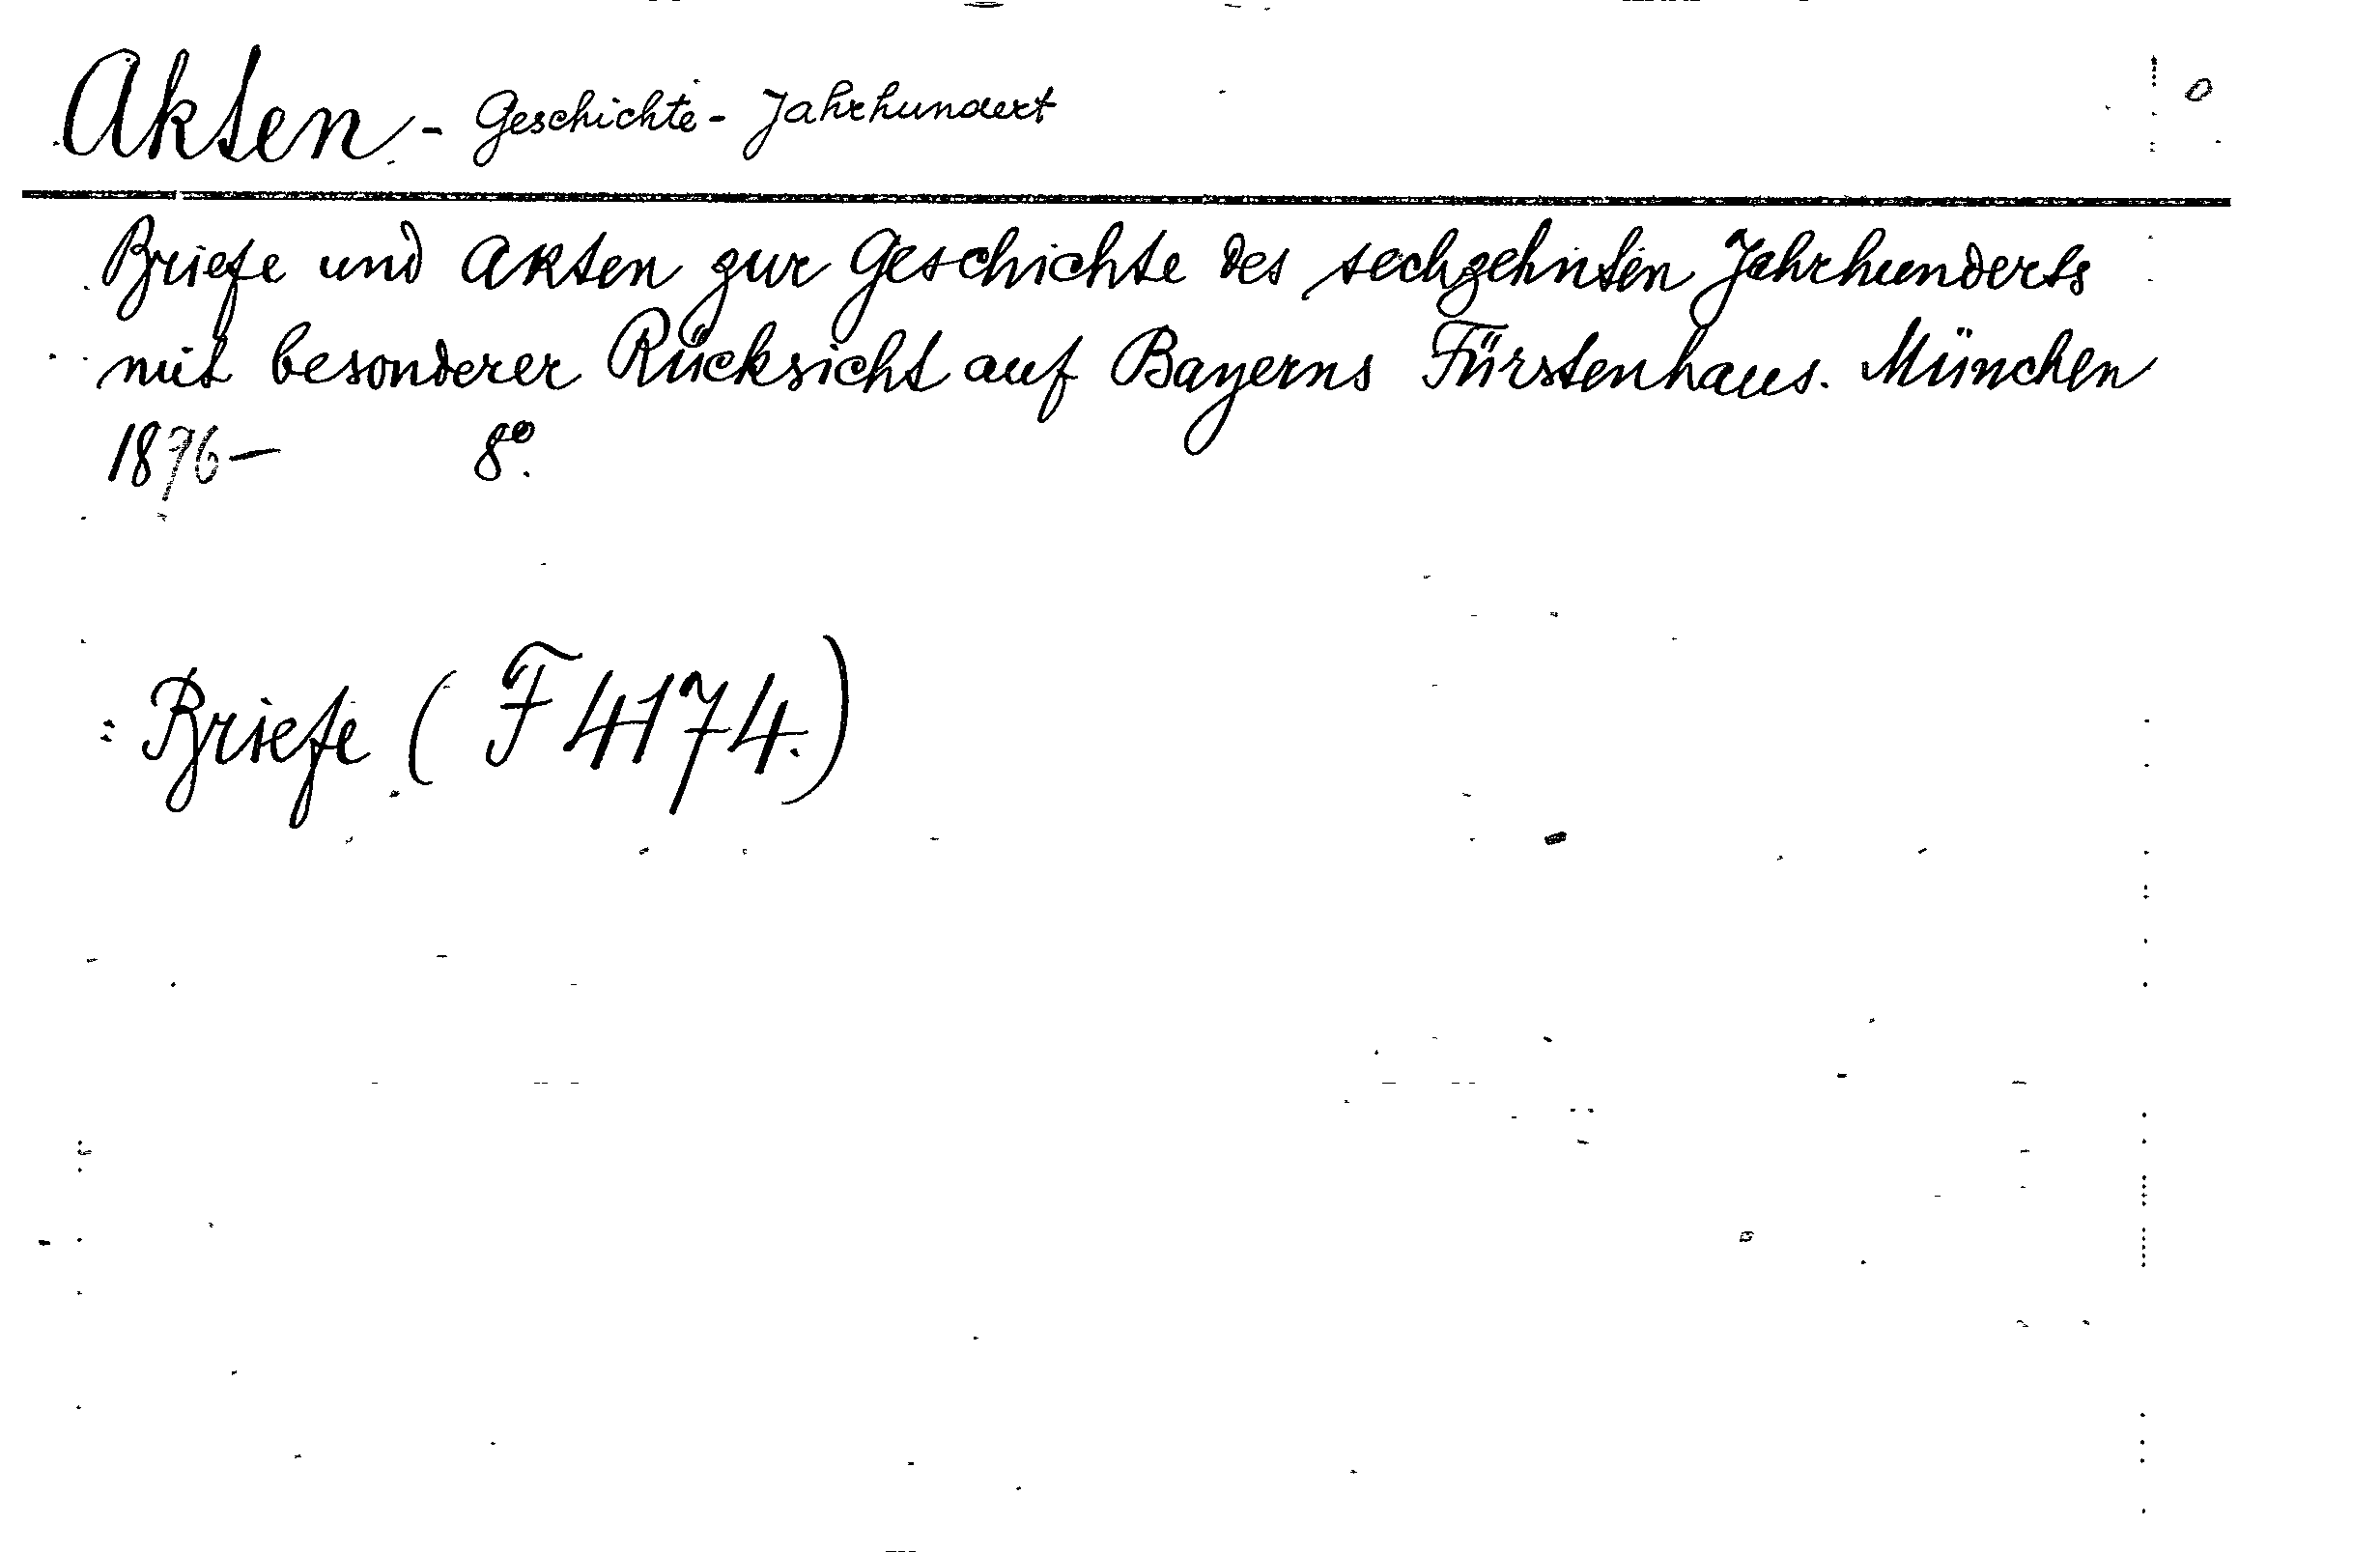 Akten - Geschichte - Jahrhundert
Briefe und Akten zur Geschichte des sechzehnten Jahrhunderts
mit besonderer Rücksicht auf Bayerns Fürstenhaus. München
1876- 8°.
: Briefe (F 4174.)